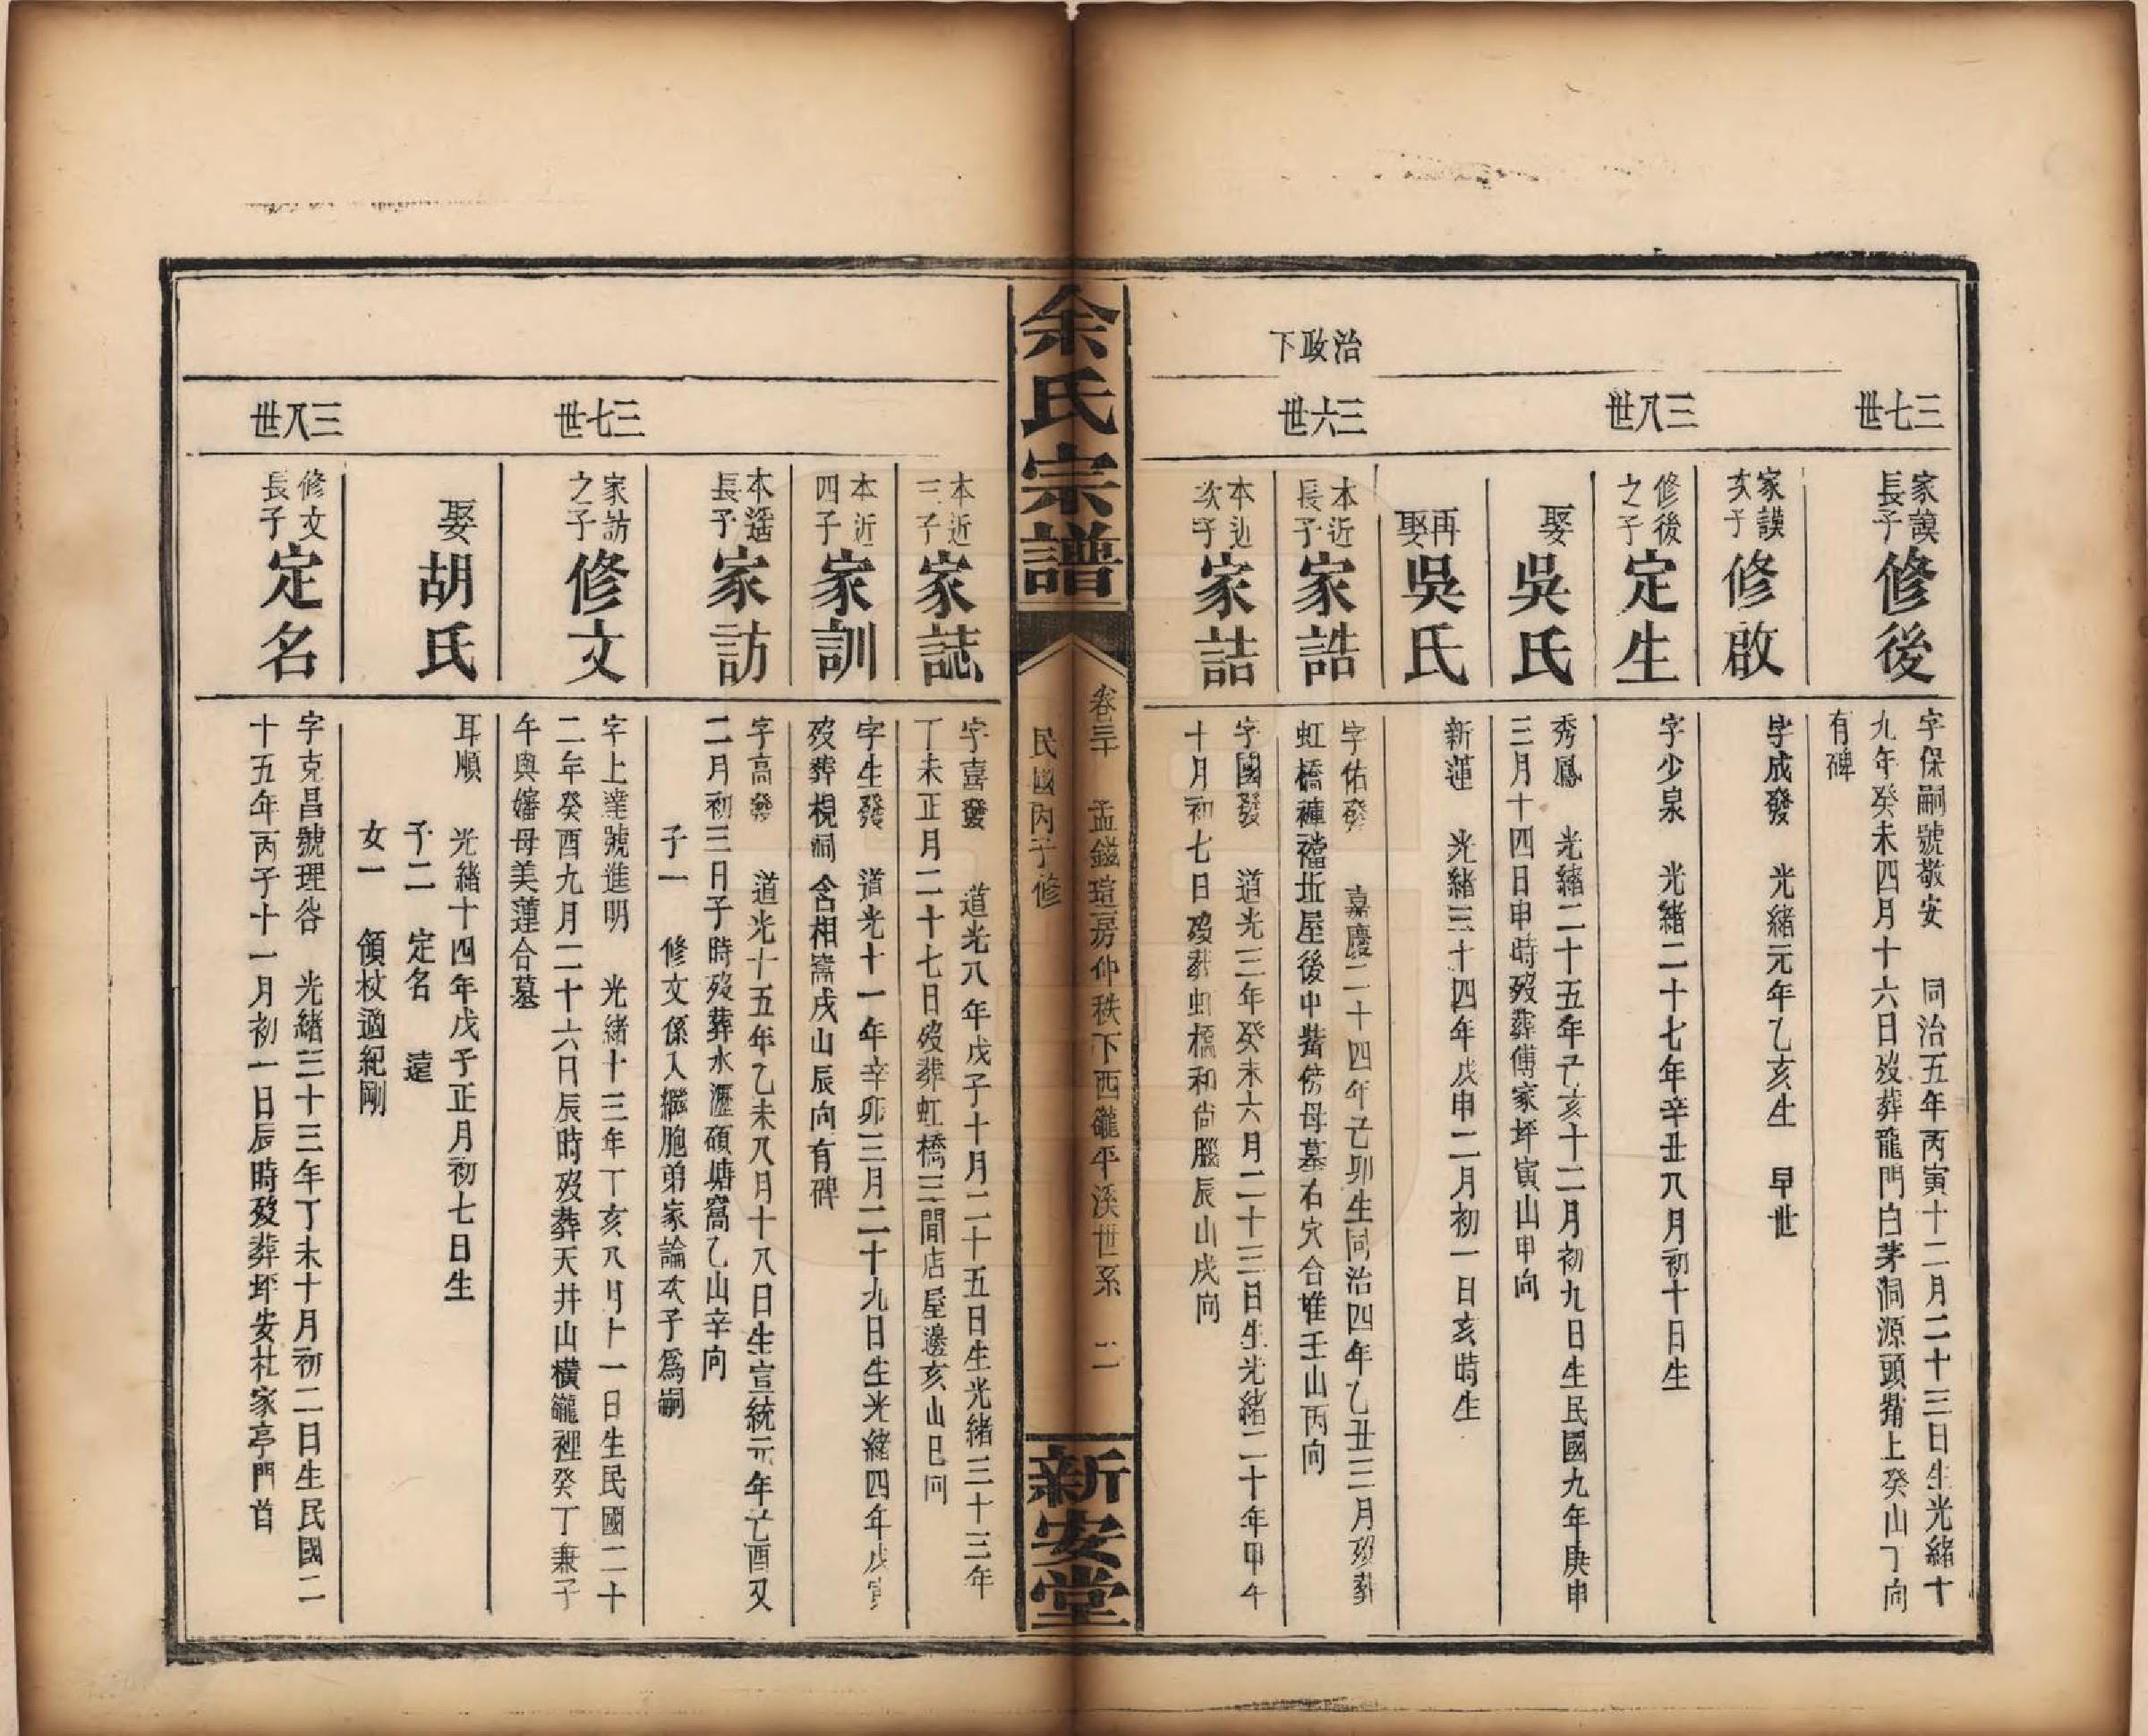 治政下
三七世
家謨長子
修後
字保嗣號敬安 同治五年丙寅十二月二十三日生光緒十
九年癸未四月十六日歿葬龍門白茅洞源頭嘴上癸山丁向
有碑
家謨次子
修啟
字成發 光緒元年乙亥生 早世
三八世
修後之子
定生
字少泉 光緒二十七年辛丑八月初十日生
娶
吳氏
秀鳳 光緒二十五年己亥十二月初九日生民國九年庚申
三月十四日申時歿葬傅家坪寅山申向
再娶
吳氏
新蓮 光緒三十四年戊申二月初一日亥時生
三六世
本近長子
家誥
字佑發 嘉慶二十四年己卯生同治四年乙丑三月歿葬
虹橋褲襠坵屋後中嘴傍母墓右穴合堆壬山丙向
本近次子
家詰
字國發 道光三年癸未六月二十三日生光緒二十年甲午
十月初七日歿葬虹橋和尚腦辰山戌向
余氏宗譜
卷三十 孟錢瑄房仲秩下西礲平溪世系 二
民國丙子修
新安堂
本近三子
家誌
字喜發 道光八年戊子十月二十五日生光緒三十三年
丁未正月二十七日歿葬虹橋三間店屋邊亥山巳向
本近四子
家訓
字生發 道光十一年辛卯三月二十九日生光緒四年戊寅
歿葬梘祠 含相嵩戌山辰向有碑
本遙長子
家訪
字高發 道光十五年乙未八月十八日生宣統元年己酉又
二月初三日子時歿葬水瀝碩塘窩乙山辛向
子一 修文係入繼胞弟家論次子爲嗣
三七世
家訪之子
修文
字上達號進明 光緒十三年丁亥八月十一日生民國二十
二年癸酉九月二十六日辰時歿葬天井山橫礲裡癸丁兼子
午與嬸母美蓮合墓
娶
胡氏
耳順 光緒十四年戊子正月初七日生
子二 定名 遠
女一 領杖適紀剛
三八世
修文長子
定名
字克昌號理谷 光緒三十三年丁未十月初二日生民國二
十五年丙子十一月初一日辰時歿葬坪安社家亭門首